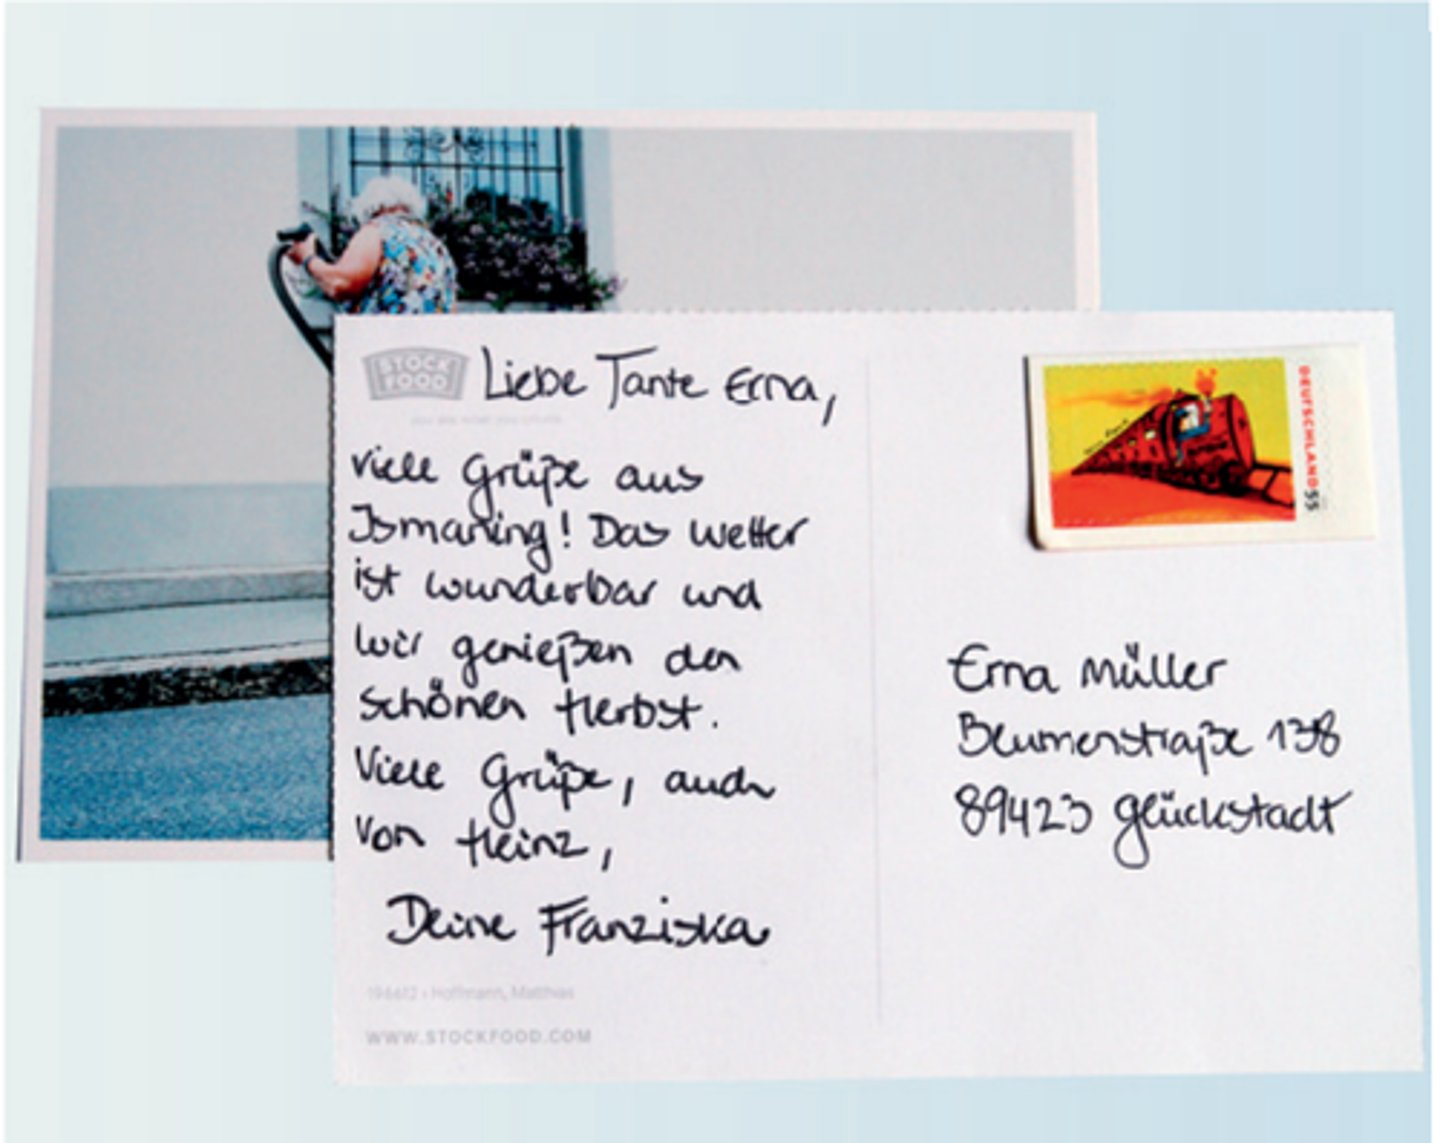 STOCK
FOOD
Liebe Tante Erna,
viele Grüße aus
Ismaning! Das Wetter
ist wunderbar und
wir genießen den
schönen Herbst.
Viele Grüße, auch
von Heinz,
Deine Franziska
194612 · Hoffmann, Matthias
WWW.STOCKFOOD.COM
DEUTSCHLAND 55
Erna Müller
Blumenstraße 138
89423 Glückstadt